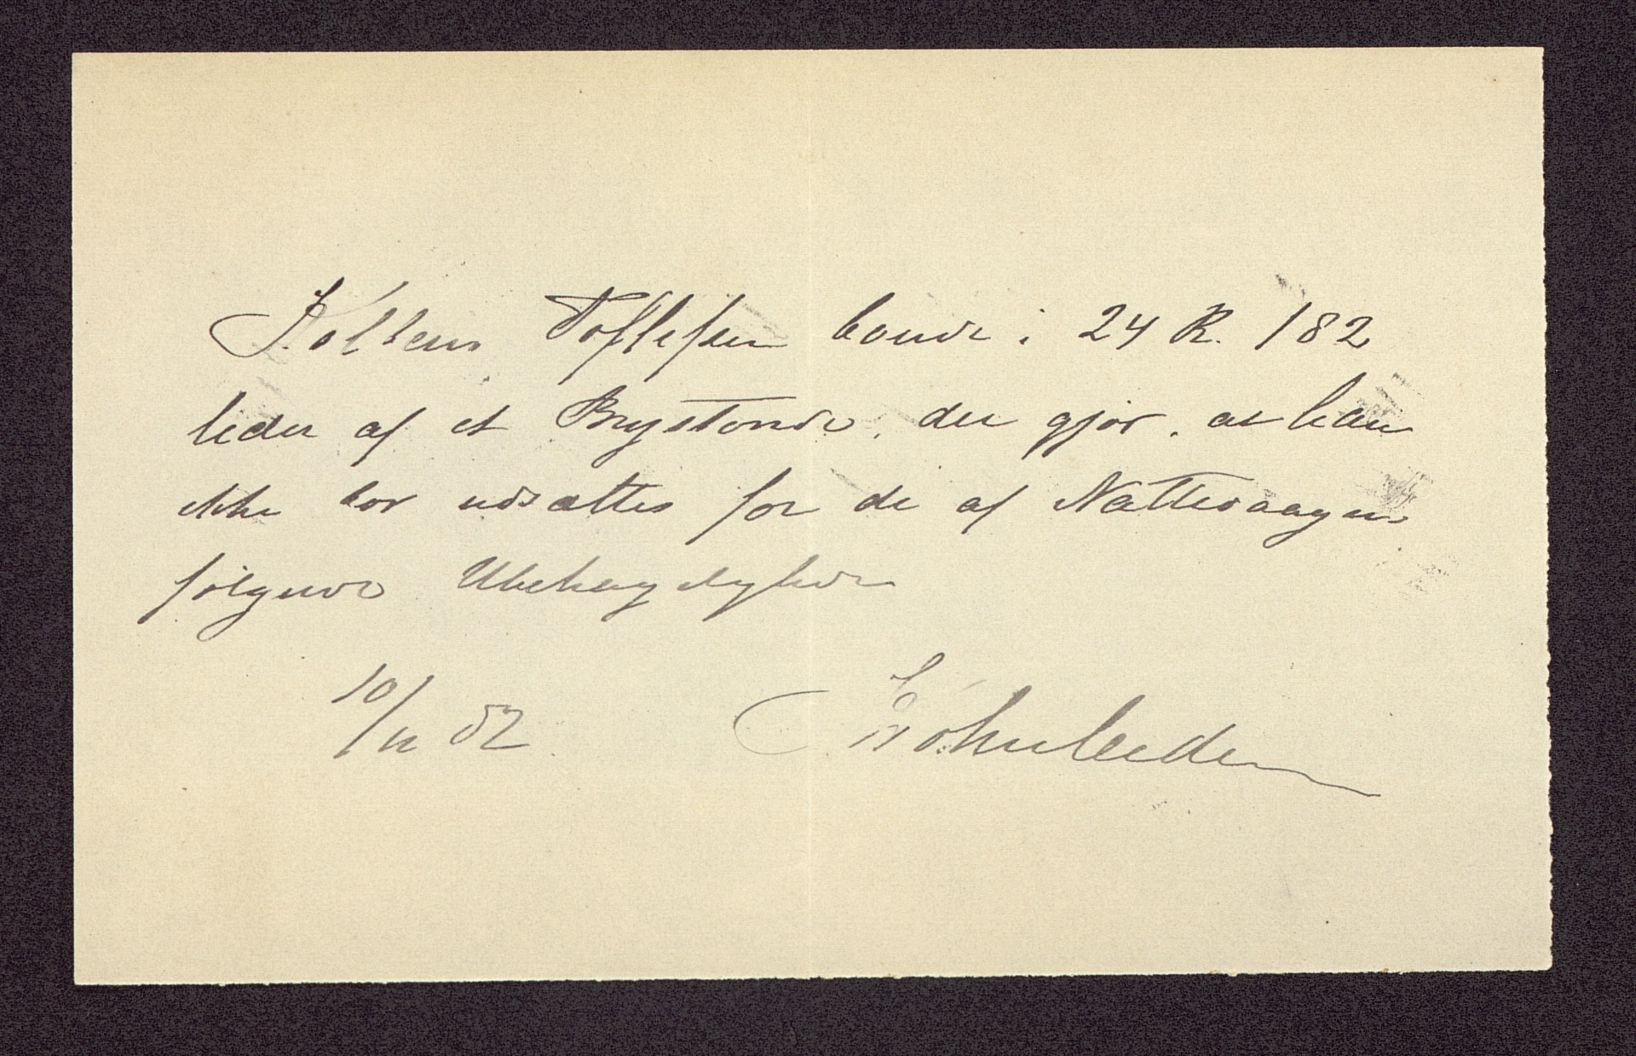 Tollefsen boende i 24 R. 182
lider af et Brystonde, der gjør, at han
ikke bør udsættes for de af Nattevaagen
følgende Ubehageligheder
10/11 82